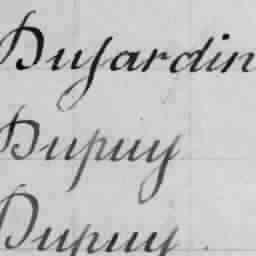 Dujardin
Dupuy
Dupuy